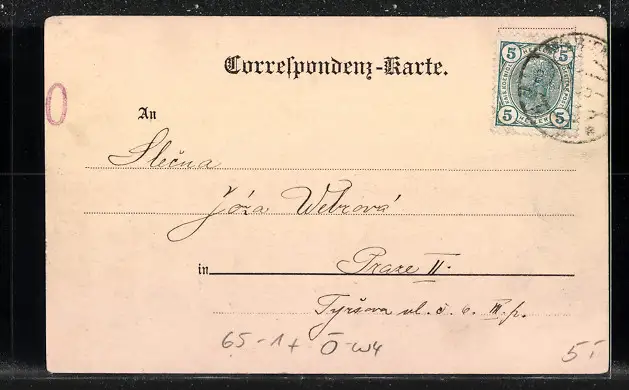 Correspondenz-Karte.
5 5
5 5
An
Slečna
Józa Webrová
in Praze II.
Tyršova ul. č. 6. III. p.
65-1+ Ö-W4
5